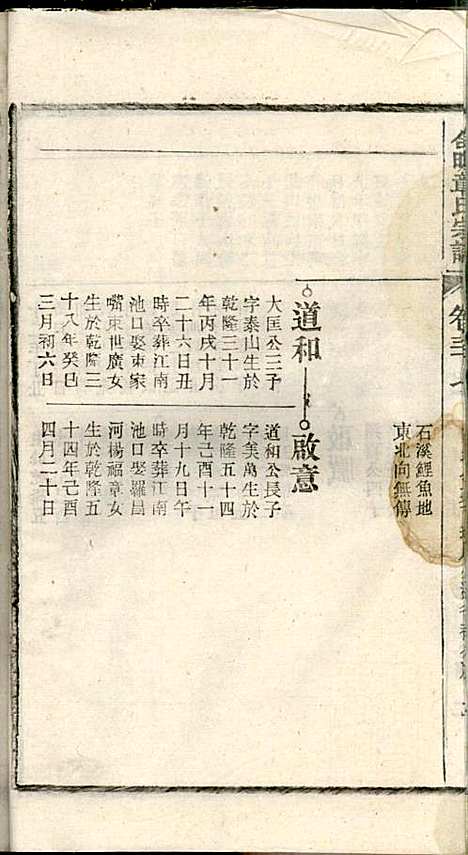 章氏宗譜
石溪鯉魚地
東北向無傳
道和
大匡公三子
字泰山生於
乾隆三十一
年丙戌十月
二十六日丑
時卒葬江南
池口娶東家
嘴宋世廣女
生於乾隆三
十八年癸巳
三月初六日
啟意
道和公長子
字美萬生於
乾隆五十四
年己酉十一
月十九日午
時卒葬江南
池口娶羅昌
河楊福章女
生於乾隆五
十四年己酉
四月二十日